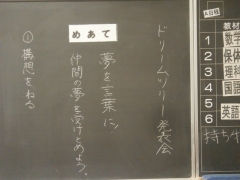 ドリームツリー発表会
めあて
夢を言葉に
仲間の夢を受けとめよう。
①構想をねる
A日程
教材
1 数学
2 保体
3 理科
4 国語
5
6 英語
持ち